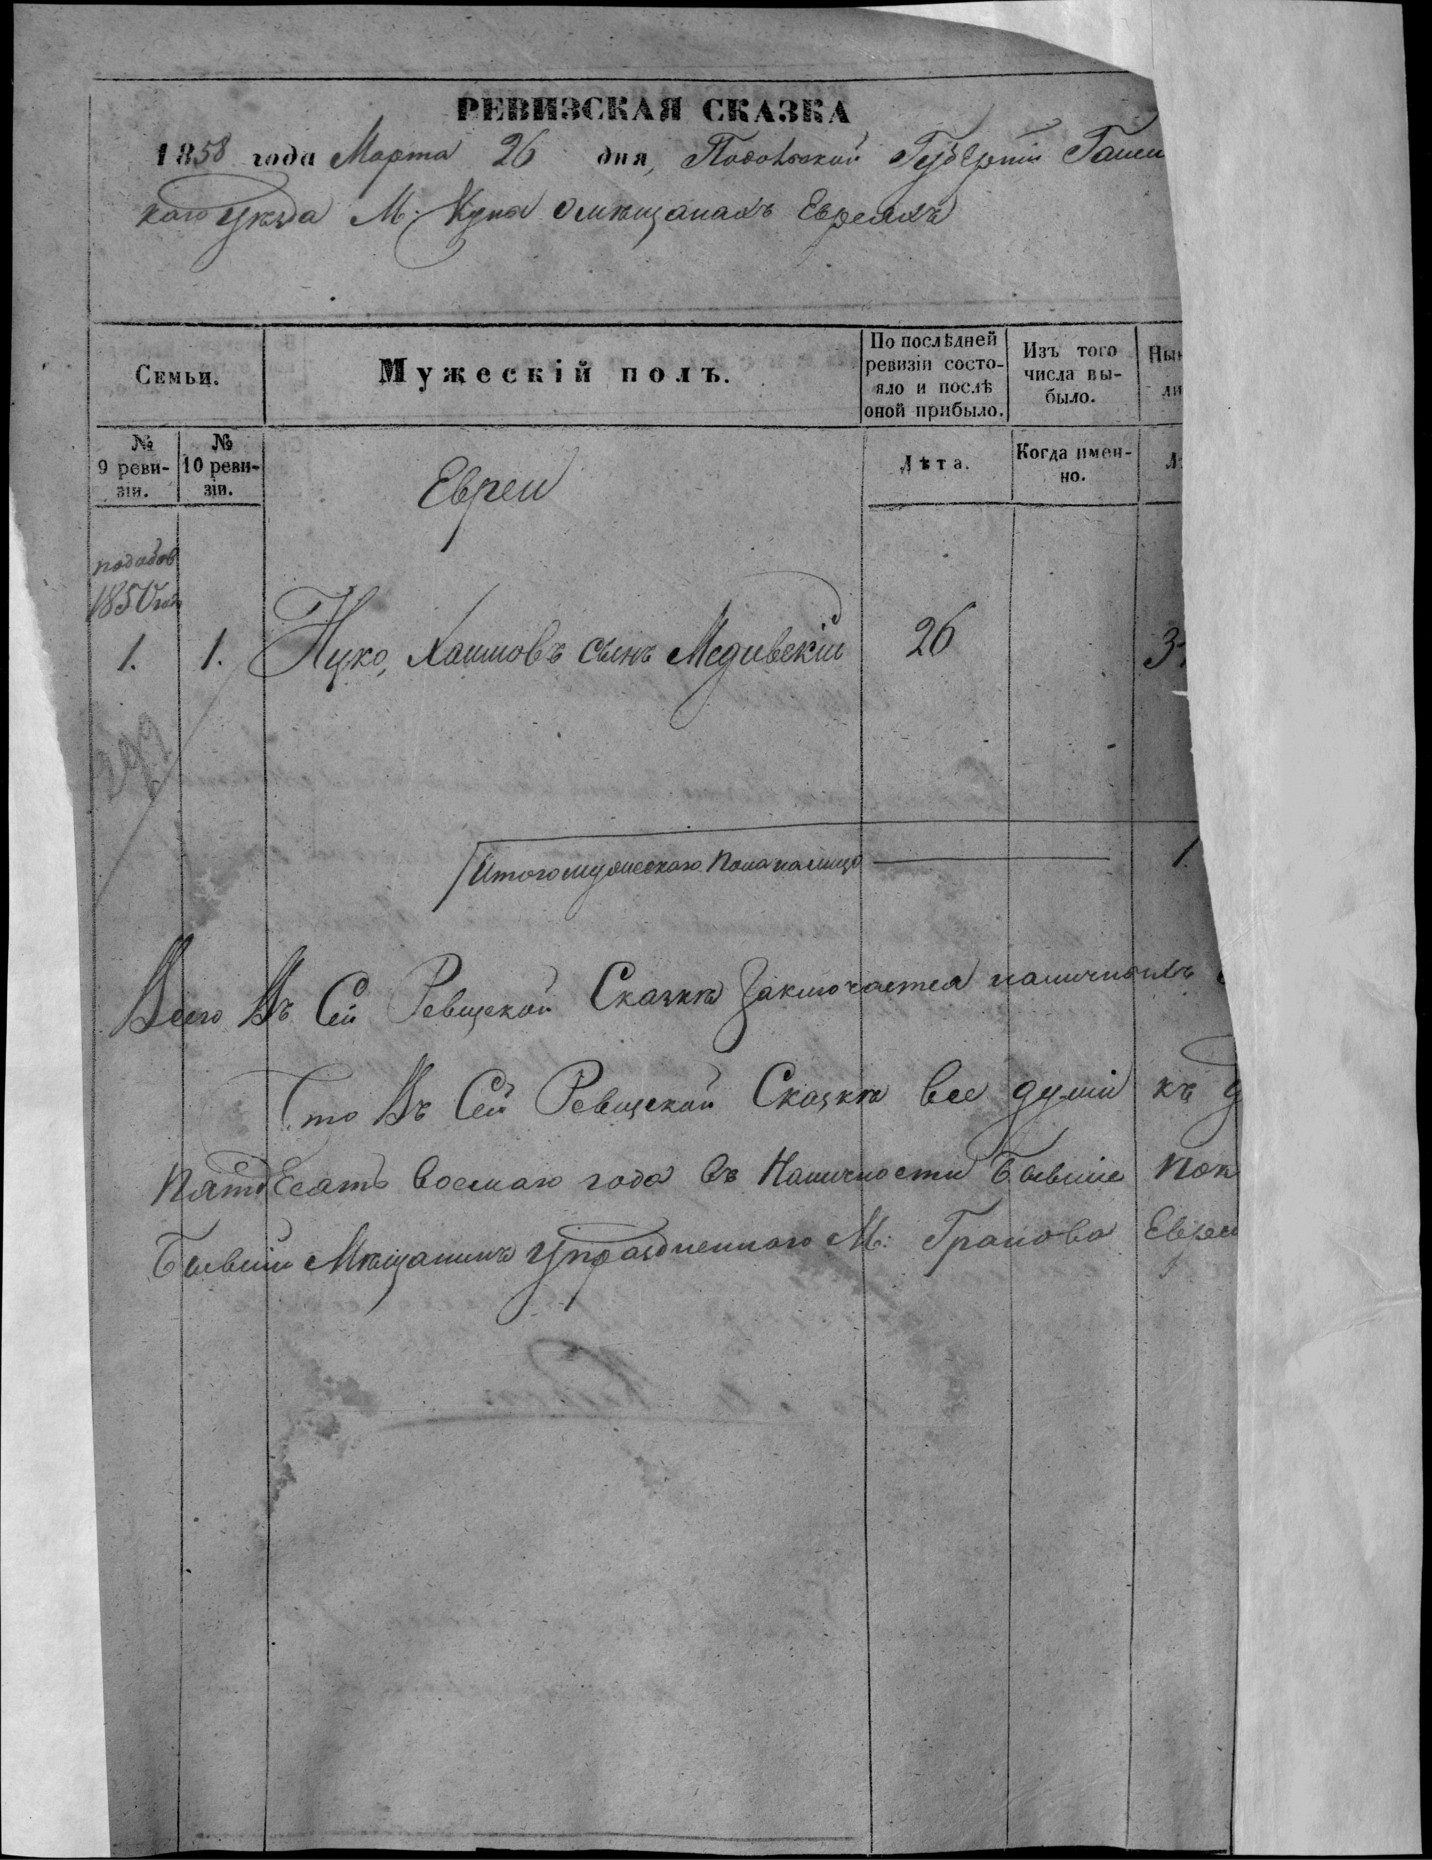 РЕВИЗСКАЯ СКАЗКА
1858 года Марта 26 дня, Подольской Губерніи Гайси
каго уѣзда М: Куна О мѣщанахъ Евреяхъ
Семьи.
Мужескій полъ.
По послѣдней ревизіи состо-
яло и послѣ
оной прибыло.
Изъ того
числа вы-
было.
Нын
ли
№
9 реви-
зіи.
№
10 реви-
зіи.
Лѣта.
Когда имен-
но.
Л
Евреи
1850
1. 1. Хаимовъ сынъ Медивскій 26 3
Итого мужескаго пола налицо 1.
Всего Въ Сей Ревизской Сказкѣ Заключается наличныхъ
Что Въ Сей Ревизской Сказкѣ все души къ
пятдесятъ восмаго года въ Наличности бывшіе пок
Бывшій Мѣщанинъ упраздненнаго М: Гранова Еврей